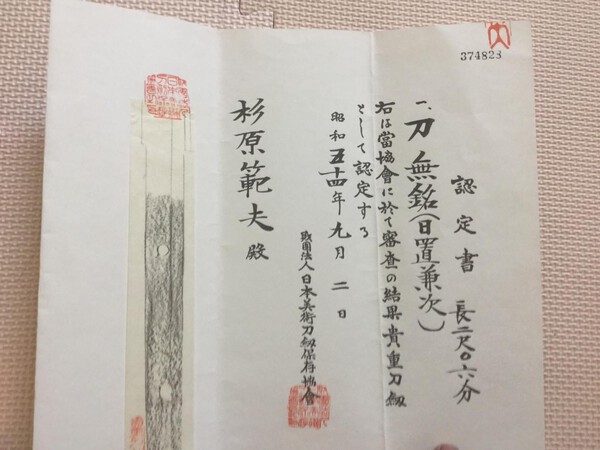 374828
認定書
一、刀 無銘(日置兼次) 長二尺〇六分
右は當協會に於て審査の結果貴重刀劔
として認定する
昭和五十四年九月二日
財団法人日本美術刀劔保存協會
杉原範夫 殿